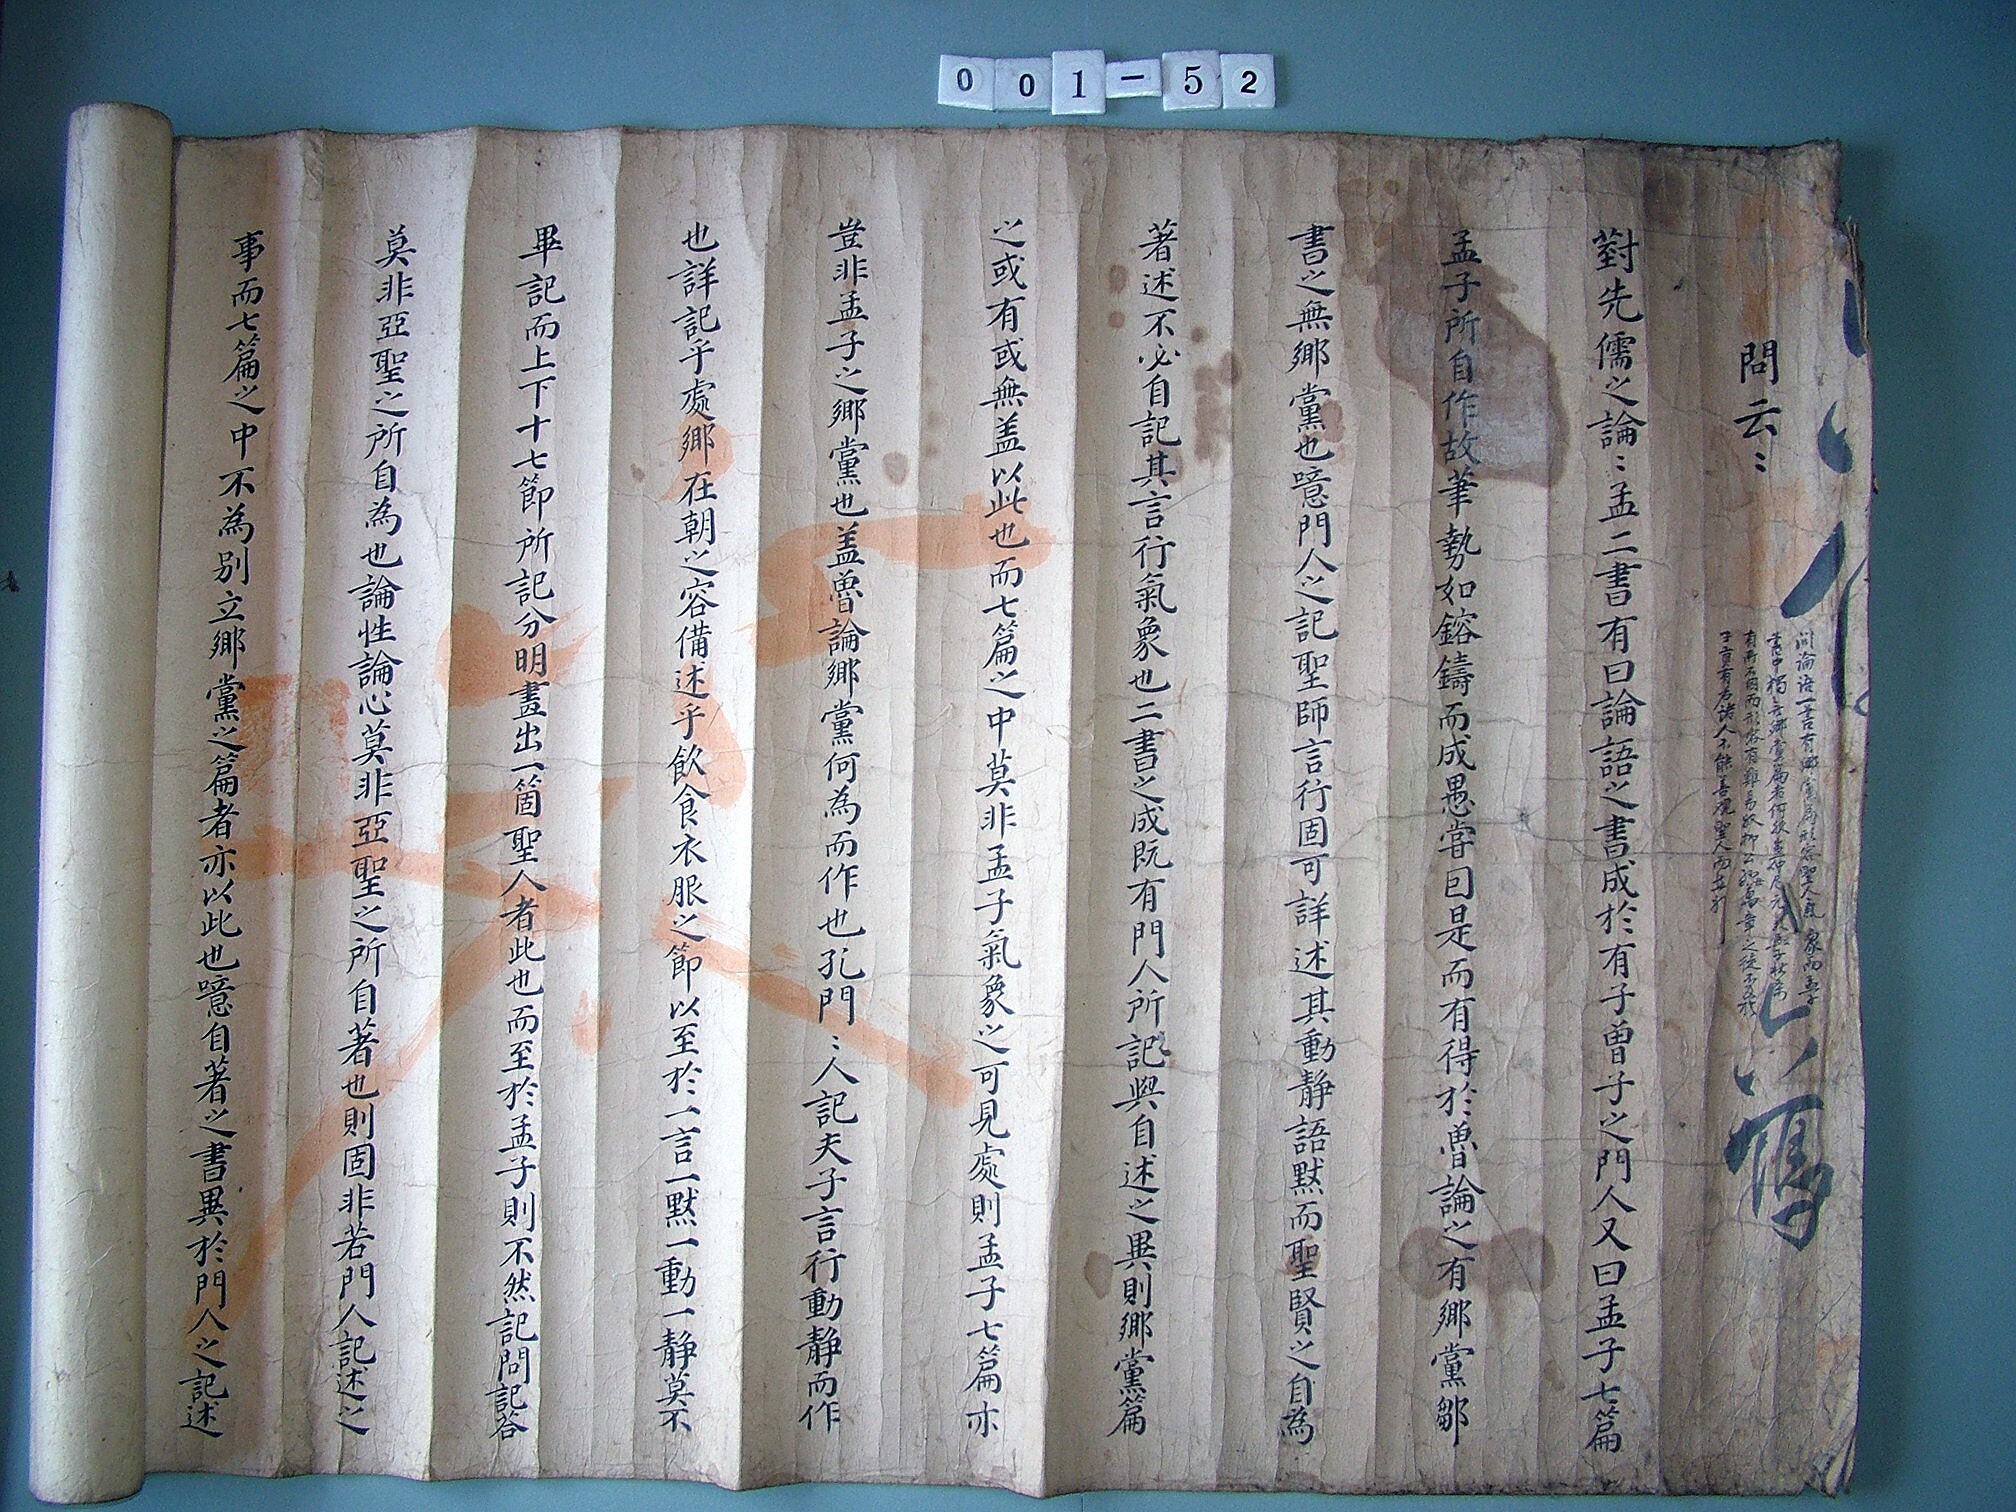 001-52
問云〻
對先儒之論〻孟二書有曰論語之書成於有子曾子之門人又曰孟子七篇
孟子所自作故筆勢如鎔鑄而成愚嘗因是而有得於魯論之有鄉黨鄒
書之無鄉黨也噫門人之記聖師言行固可詳述其動靜語默而聖賢之自為
著述不必自記其言行氣象也二書之成既有門人所記與自述之異則鄉黨篇
之或有或無盖以此也而七篇之中莫非孟子氣象之可見處則孟子七篇亦
豈非孟子之鄉黨也盖魯論鄉黨何為而作也孔門〻人記夫子言行動靜而作
也詳記乎處鄉在朝之容備述乎飲食衣服之節以至於一言一默一動一靜莫不
畢記而上下十七節所記分明畫出一箇聖人者此也而至於孟子則不然記問記答
莫非亞聖之所自為也論性論心莫非亞聖之所自著也則固非若門人記述之
事而七篇之中不為別立鄉黨之篇者亦以此也噫自著之書異於門人之記述